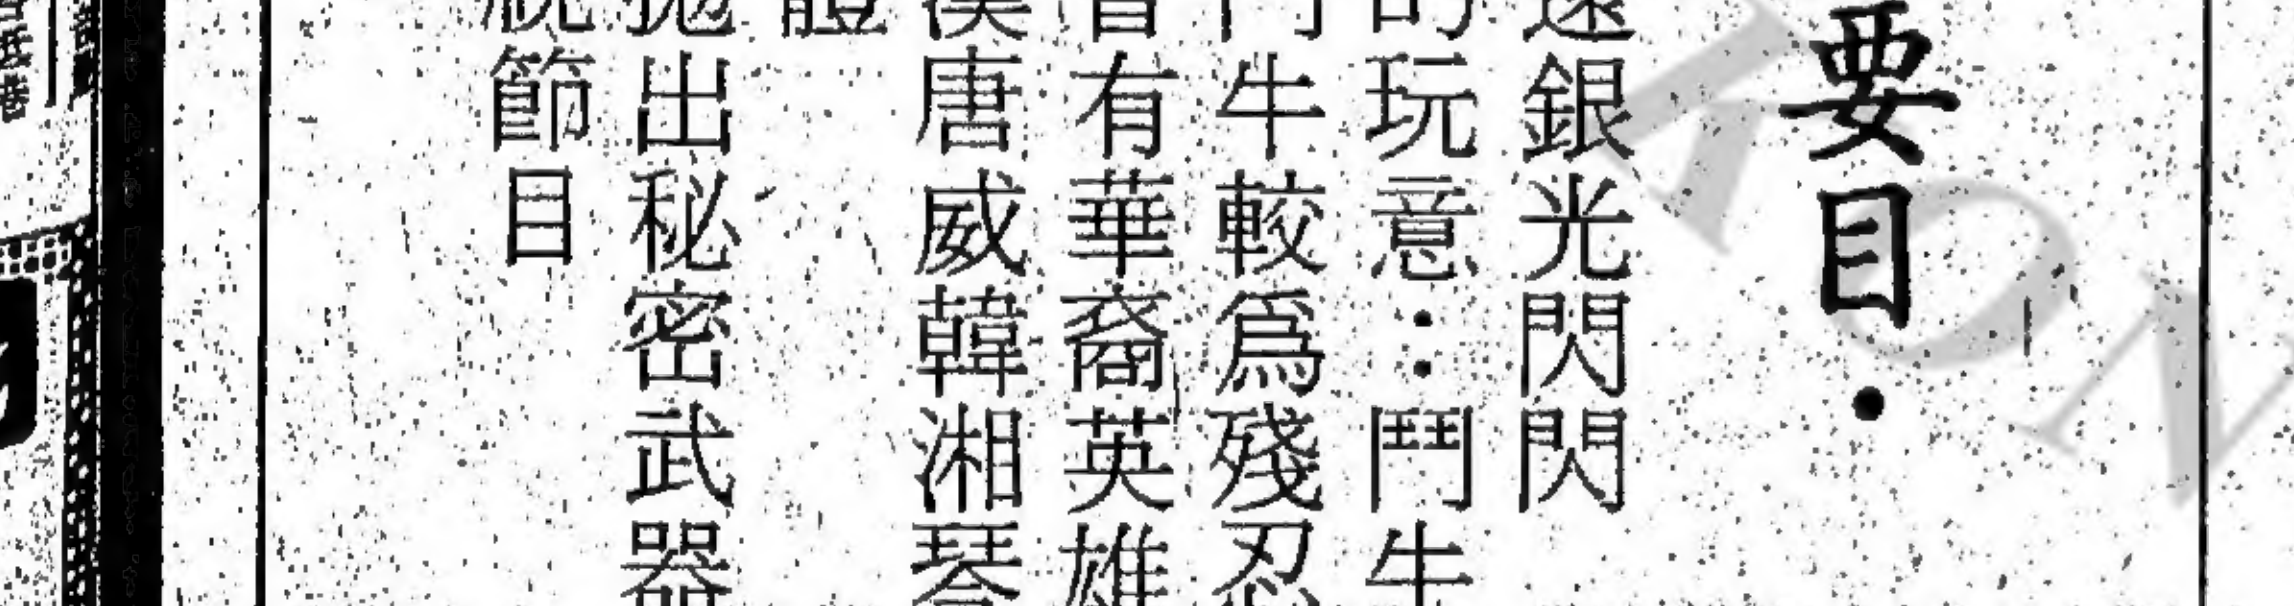 要目・
遠銀光閃閃
的玩意：鬥牛
鬥牛較爲殘忍
皆有華裔英雄
漢唐威韓湘琴
體
拋出秘密武器
視節目